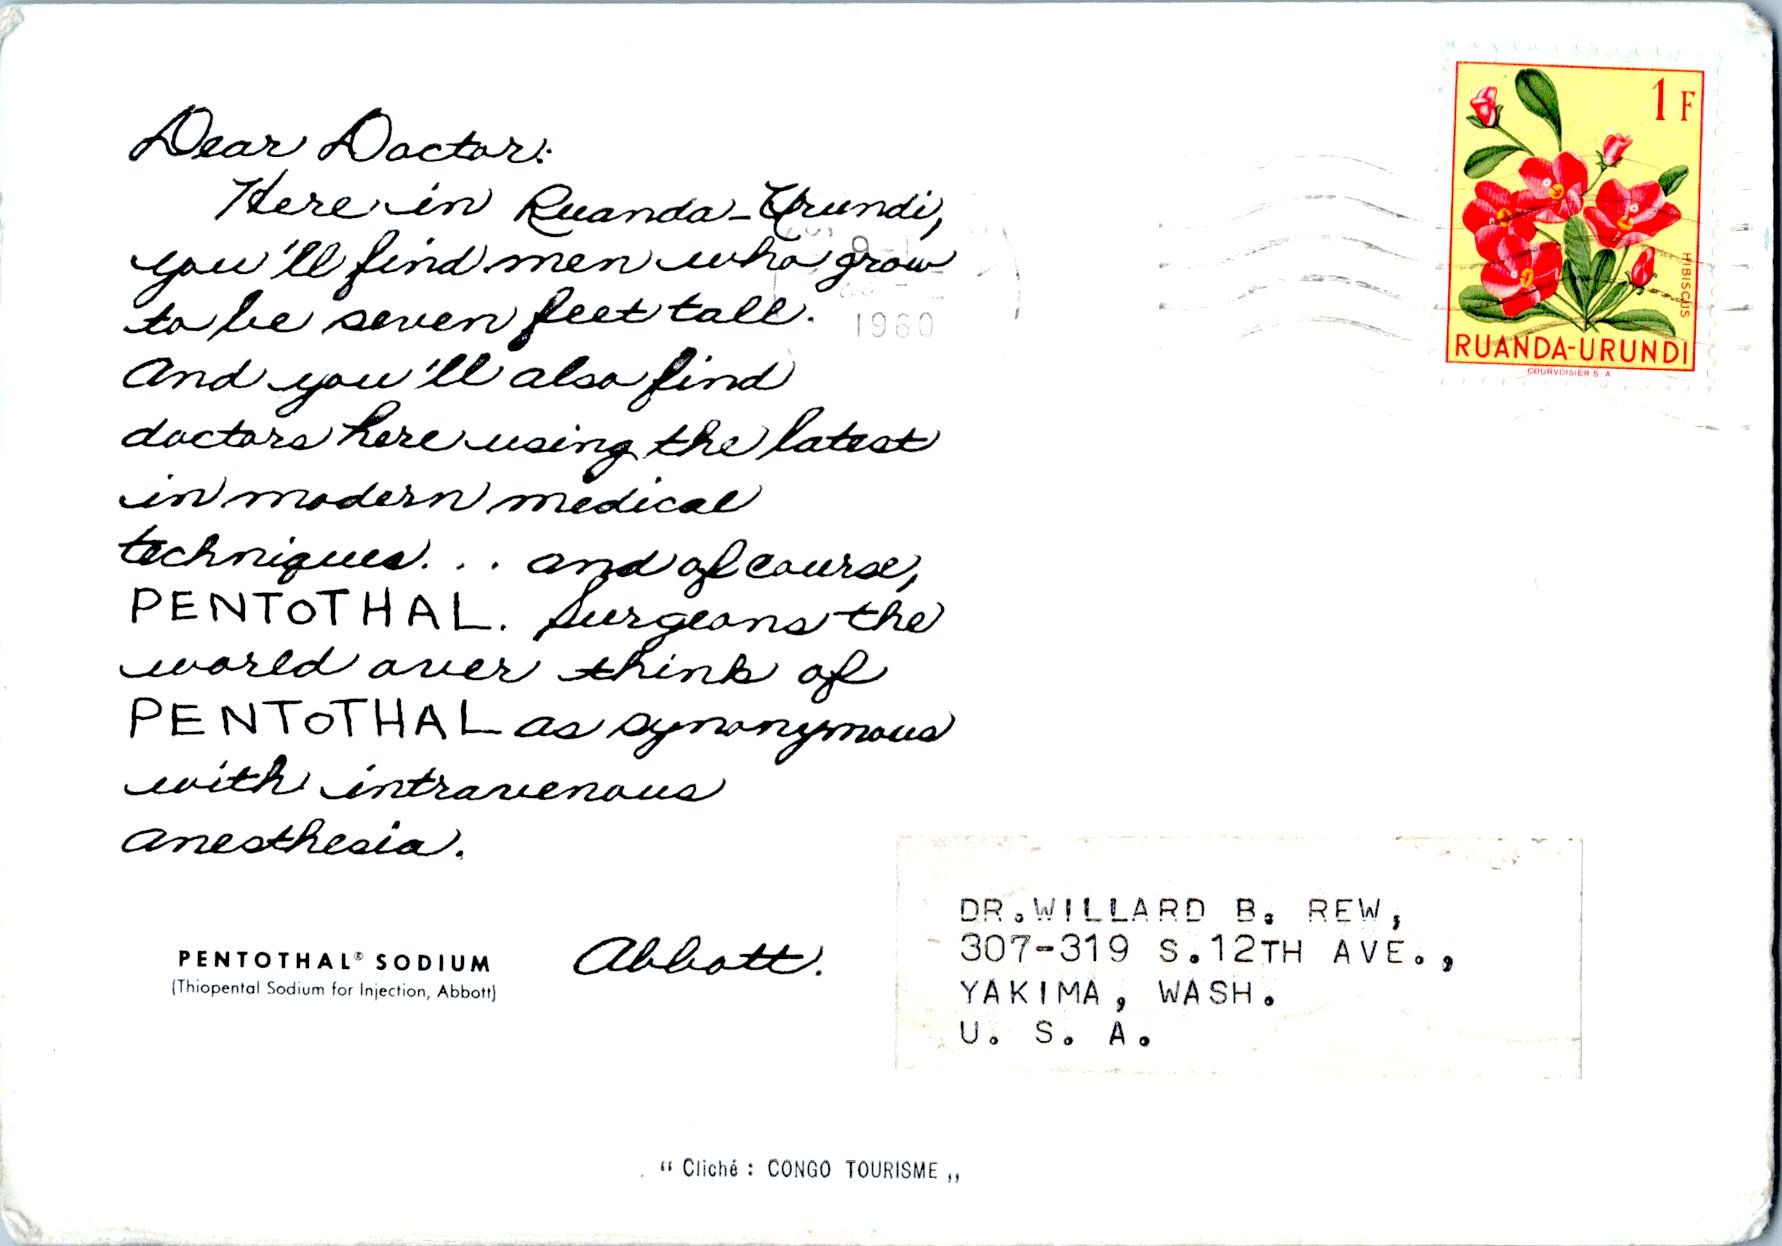 Dear Doctor:
Here in Ruanda-Urundi,
you'll find men who grow
to be seven feet tall.
And you'll also find
doctors here using the latest
in modern medical
techniques... and of course,
PENTOTHAL. Surgeons the
world over think of
PENTOTHAL as synonymous
with intravenous
anesthesia.
Abbott.
PENTOTHAL® SODIUM
(Thiopental Sodium for Injection, Abbott)
1960
1 F
HIBISCUS
RUANDA-URUNDI
COURVOISIER S. A
DR.WILLARD B. REW,
307-319 S.12TH AVE.,
YAKIMA, WASH.
U. S. A.
“ Cliché : CONGO TOURISME „